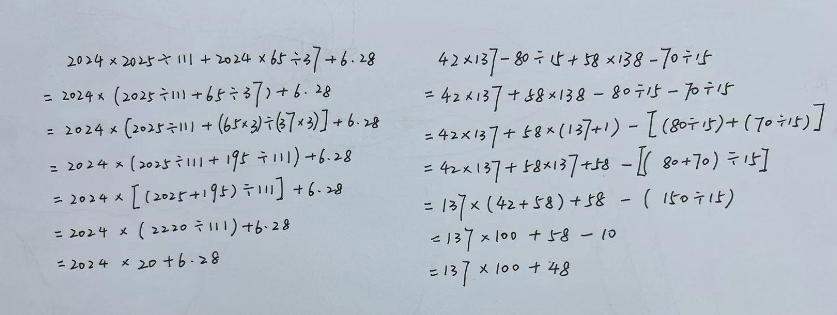 2024×2025÷111+2024×65÷37+6.28
=2024×(2025÷111+65÷37)+6.28
=2024×[2025÷111+(65×3)÷(37×3)]+6.28
=2024×(2025÷111+195÷111)+6.28
=2024×[(2025+195)÷111]+6.28
=2024×(2220÷111)+6.28
=2024×20+6.28
42×137-80÷15+58×138-70÷15
=42×137+58×138-80÷15-70÷15
=42×137+58×(137+1)-[(80÷15)+(70÷15)]
=42×137+58×137+58-[(80+70)÷15]
=137×(42+58)+58-(150÷15)
=137×100+58-10
=137×100+48